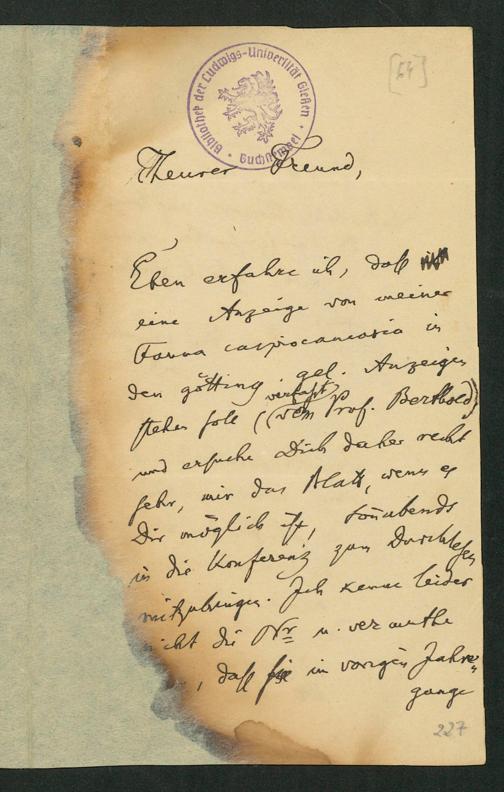 [64]
Bibliothek der Ludwigs-Universität Gießen
Theurer Freund,
Eben erfahre ich, daß
eine Anzeige von meiner
Fauna caspiocaucasia in
den götting. gel. Anzeigen
stehen soll ((verfaßt vom Prof. Berthold)
und ersuche Dich daher recht
sehr, mir das Blatt, wenn es
Dir möglich ist, Sonabends
in die Konferenz zum Durchlesen
mitzubringen. Ich kenne leider
nicht die Nr u. vermuthe
, daß sie im vorigen Jahr-
gange
227